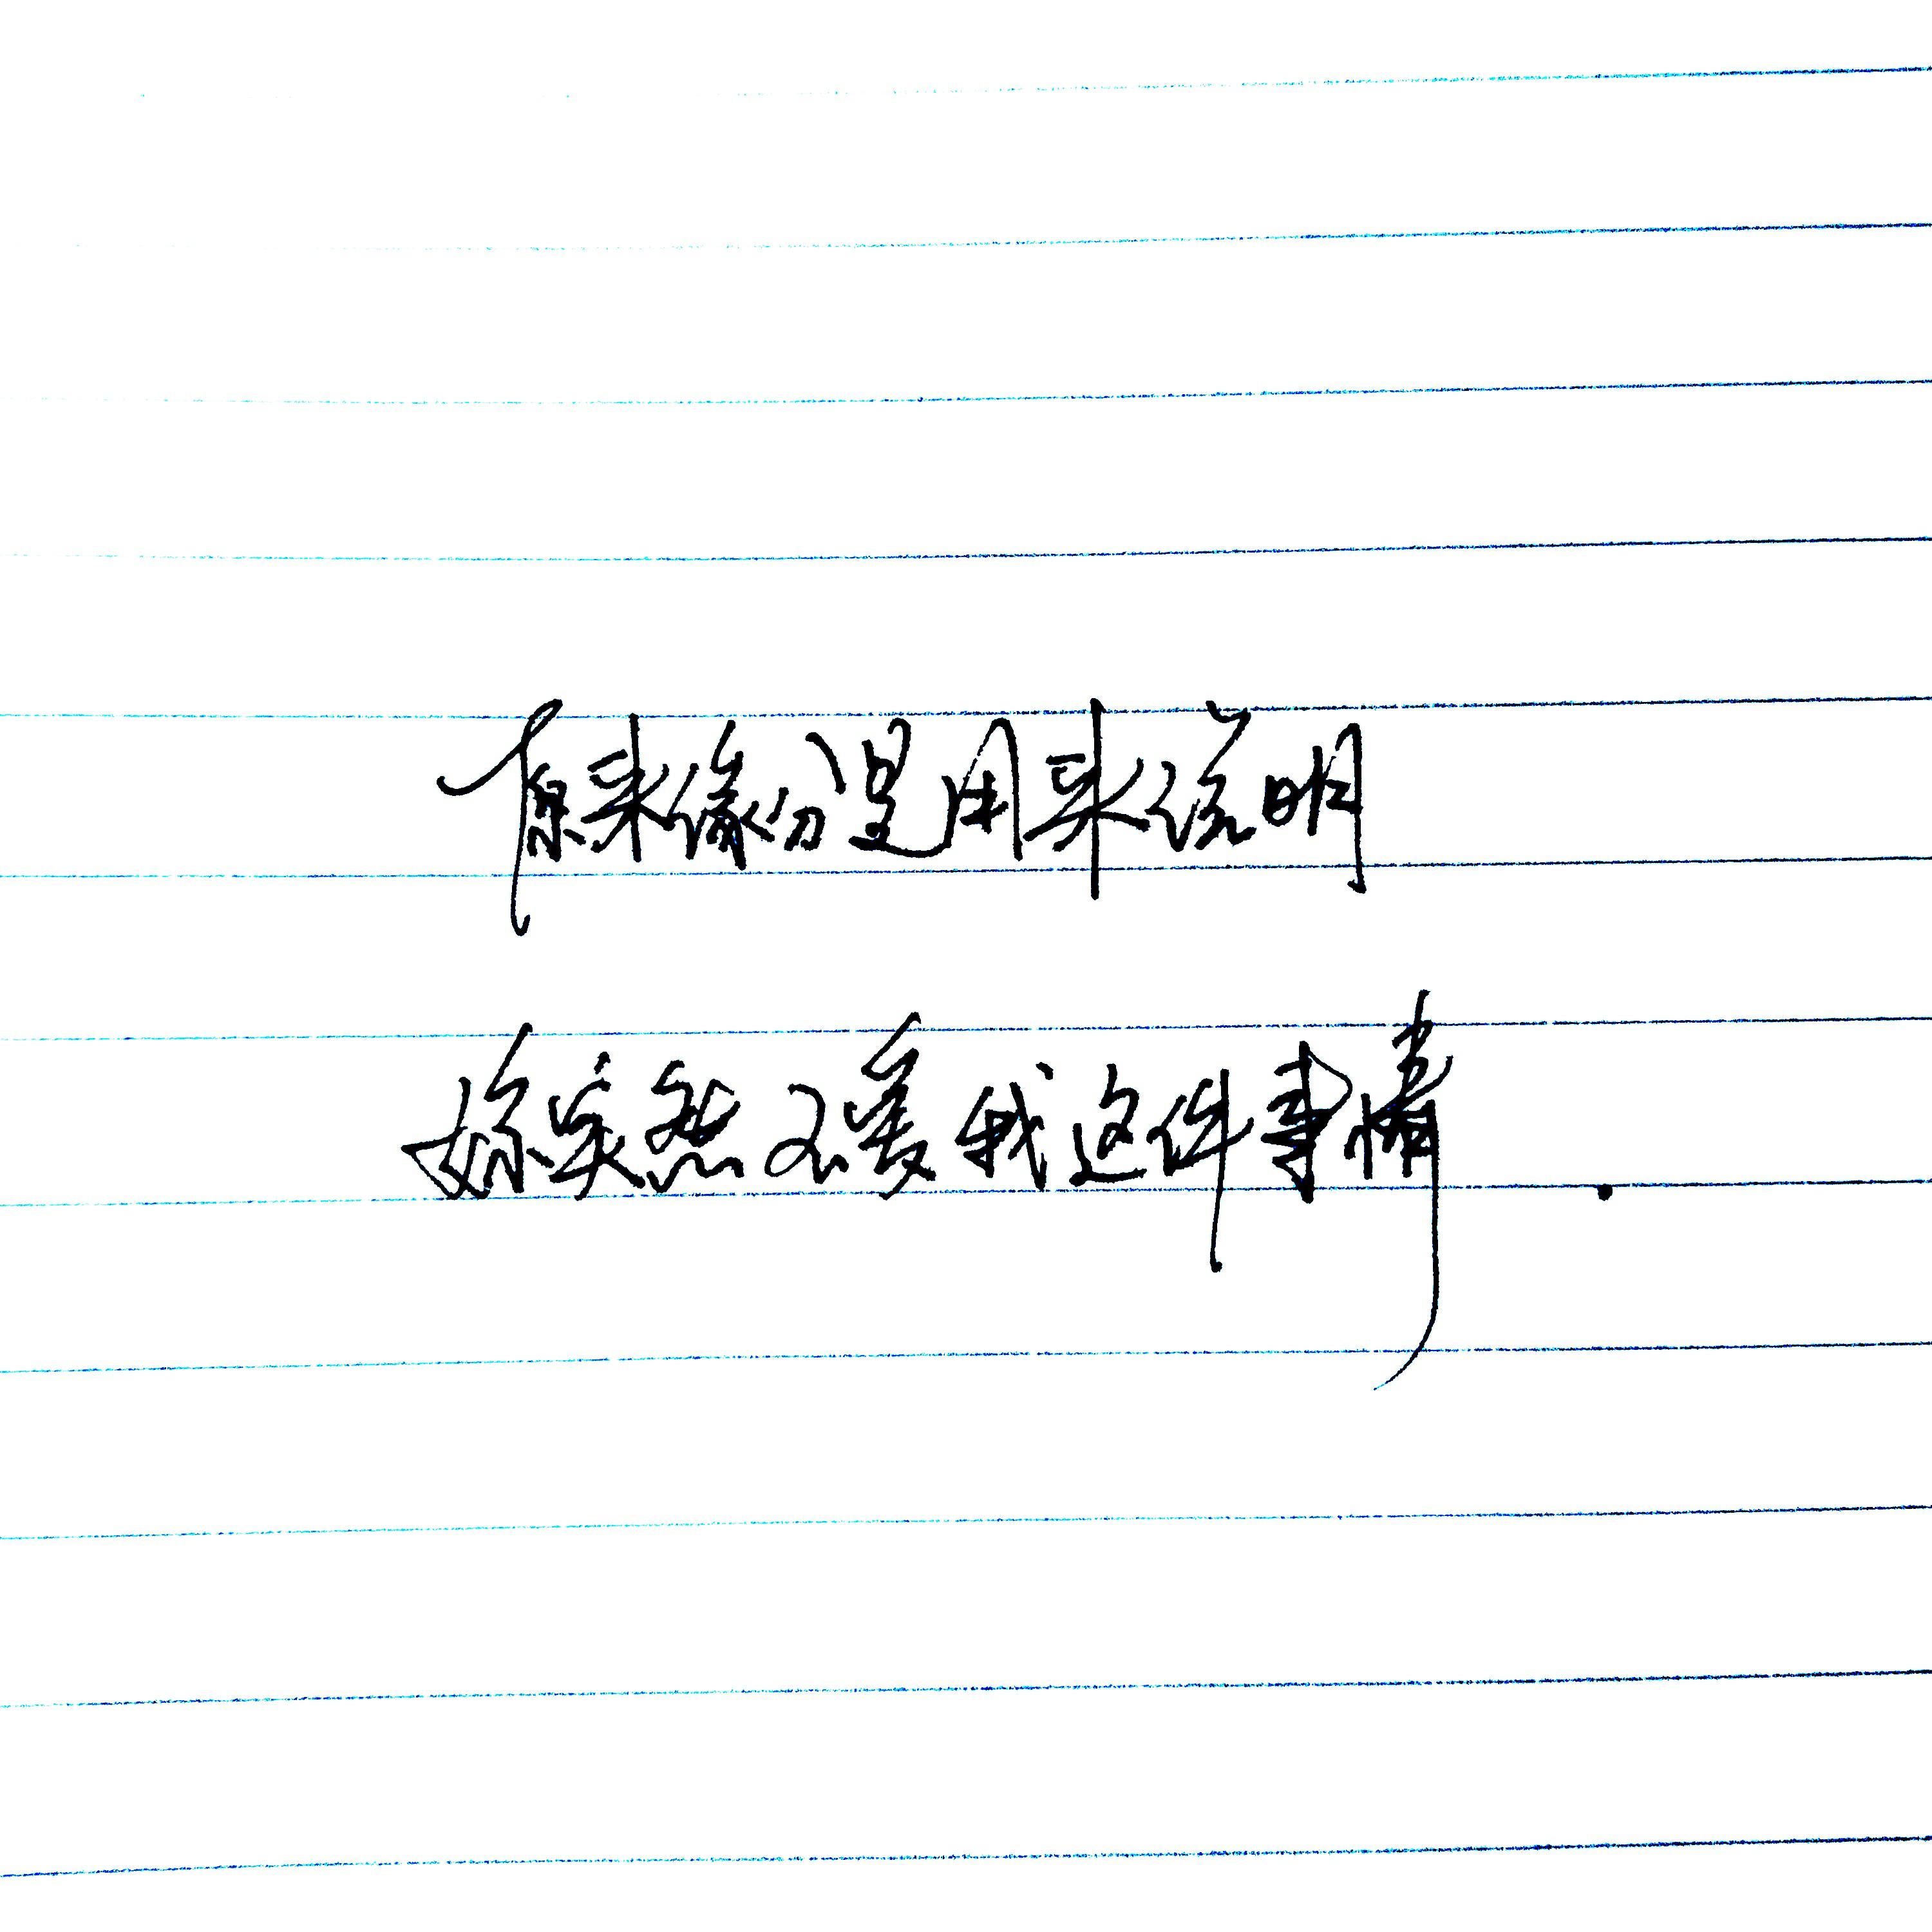 原来缘份是用来说明
妳突然不爱我这件事情.